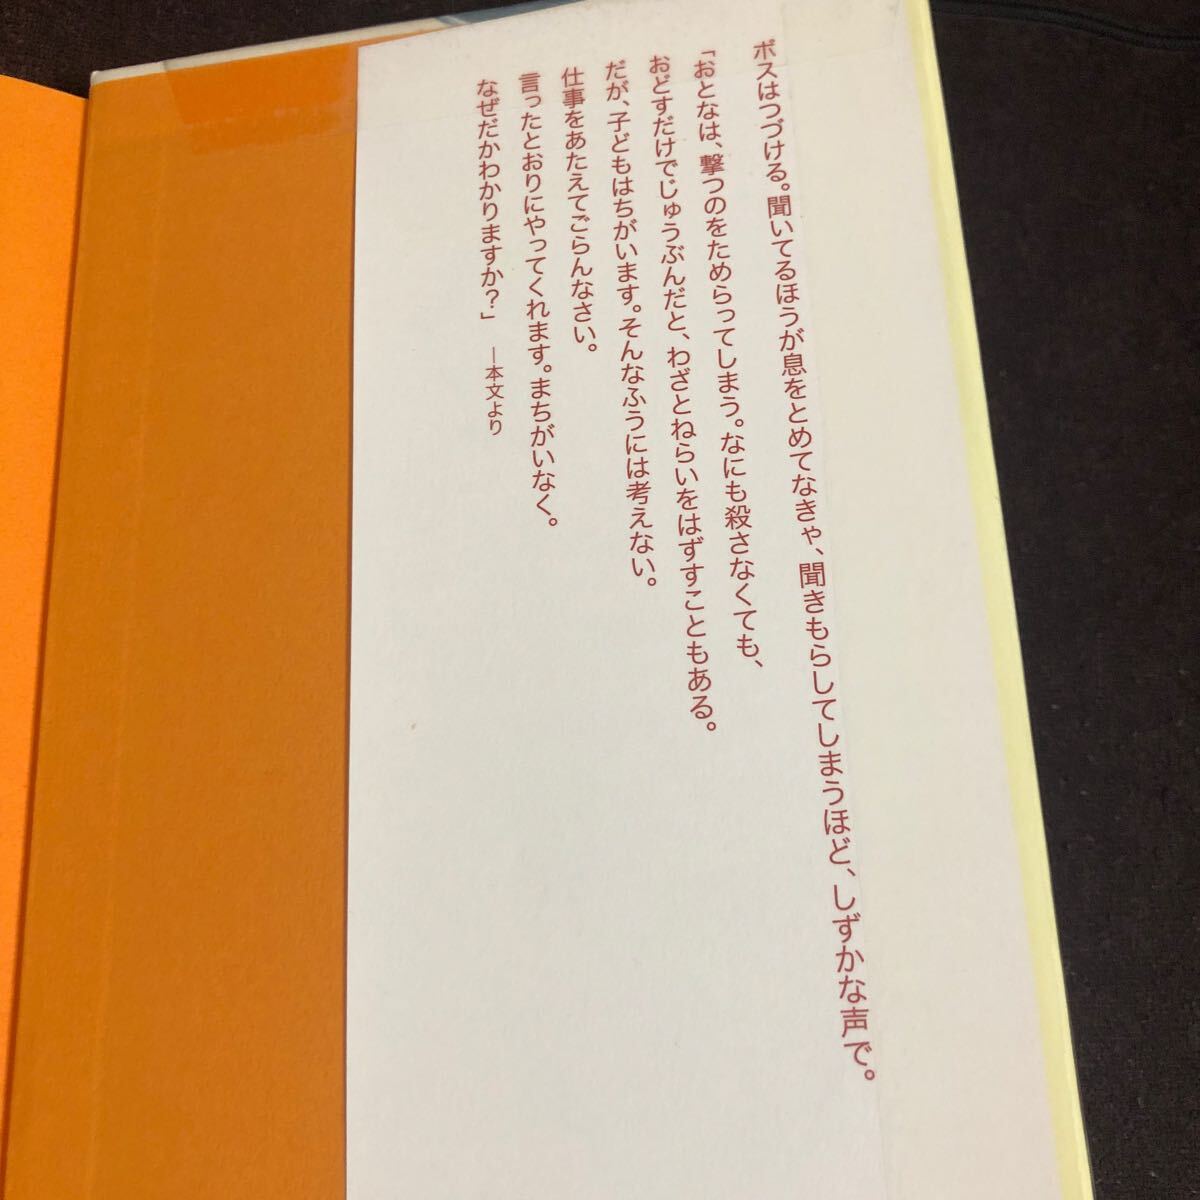 ボスはつづける。聞いてるほうが息をとめてなきゃ、聞きもらしてしまうほど、しずかな声で。
「おとなは、撃つのをためらってしまう。なにも殺さなくても、
おどすだけでじゅうぶんだと、わざとねらいをはずすこともある。
だが、子どもはちがいます。そんなふうには考えない。
仕事をあたえてごらんなさい。
言ったとおりにやってくれます。まちがいなく。
なぜだかわかりますか？」 ―本文より